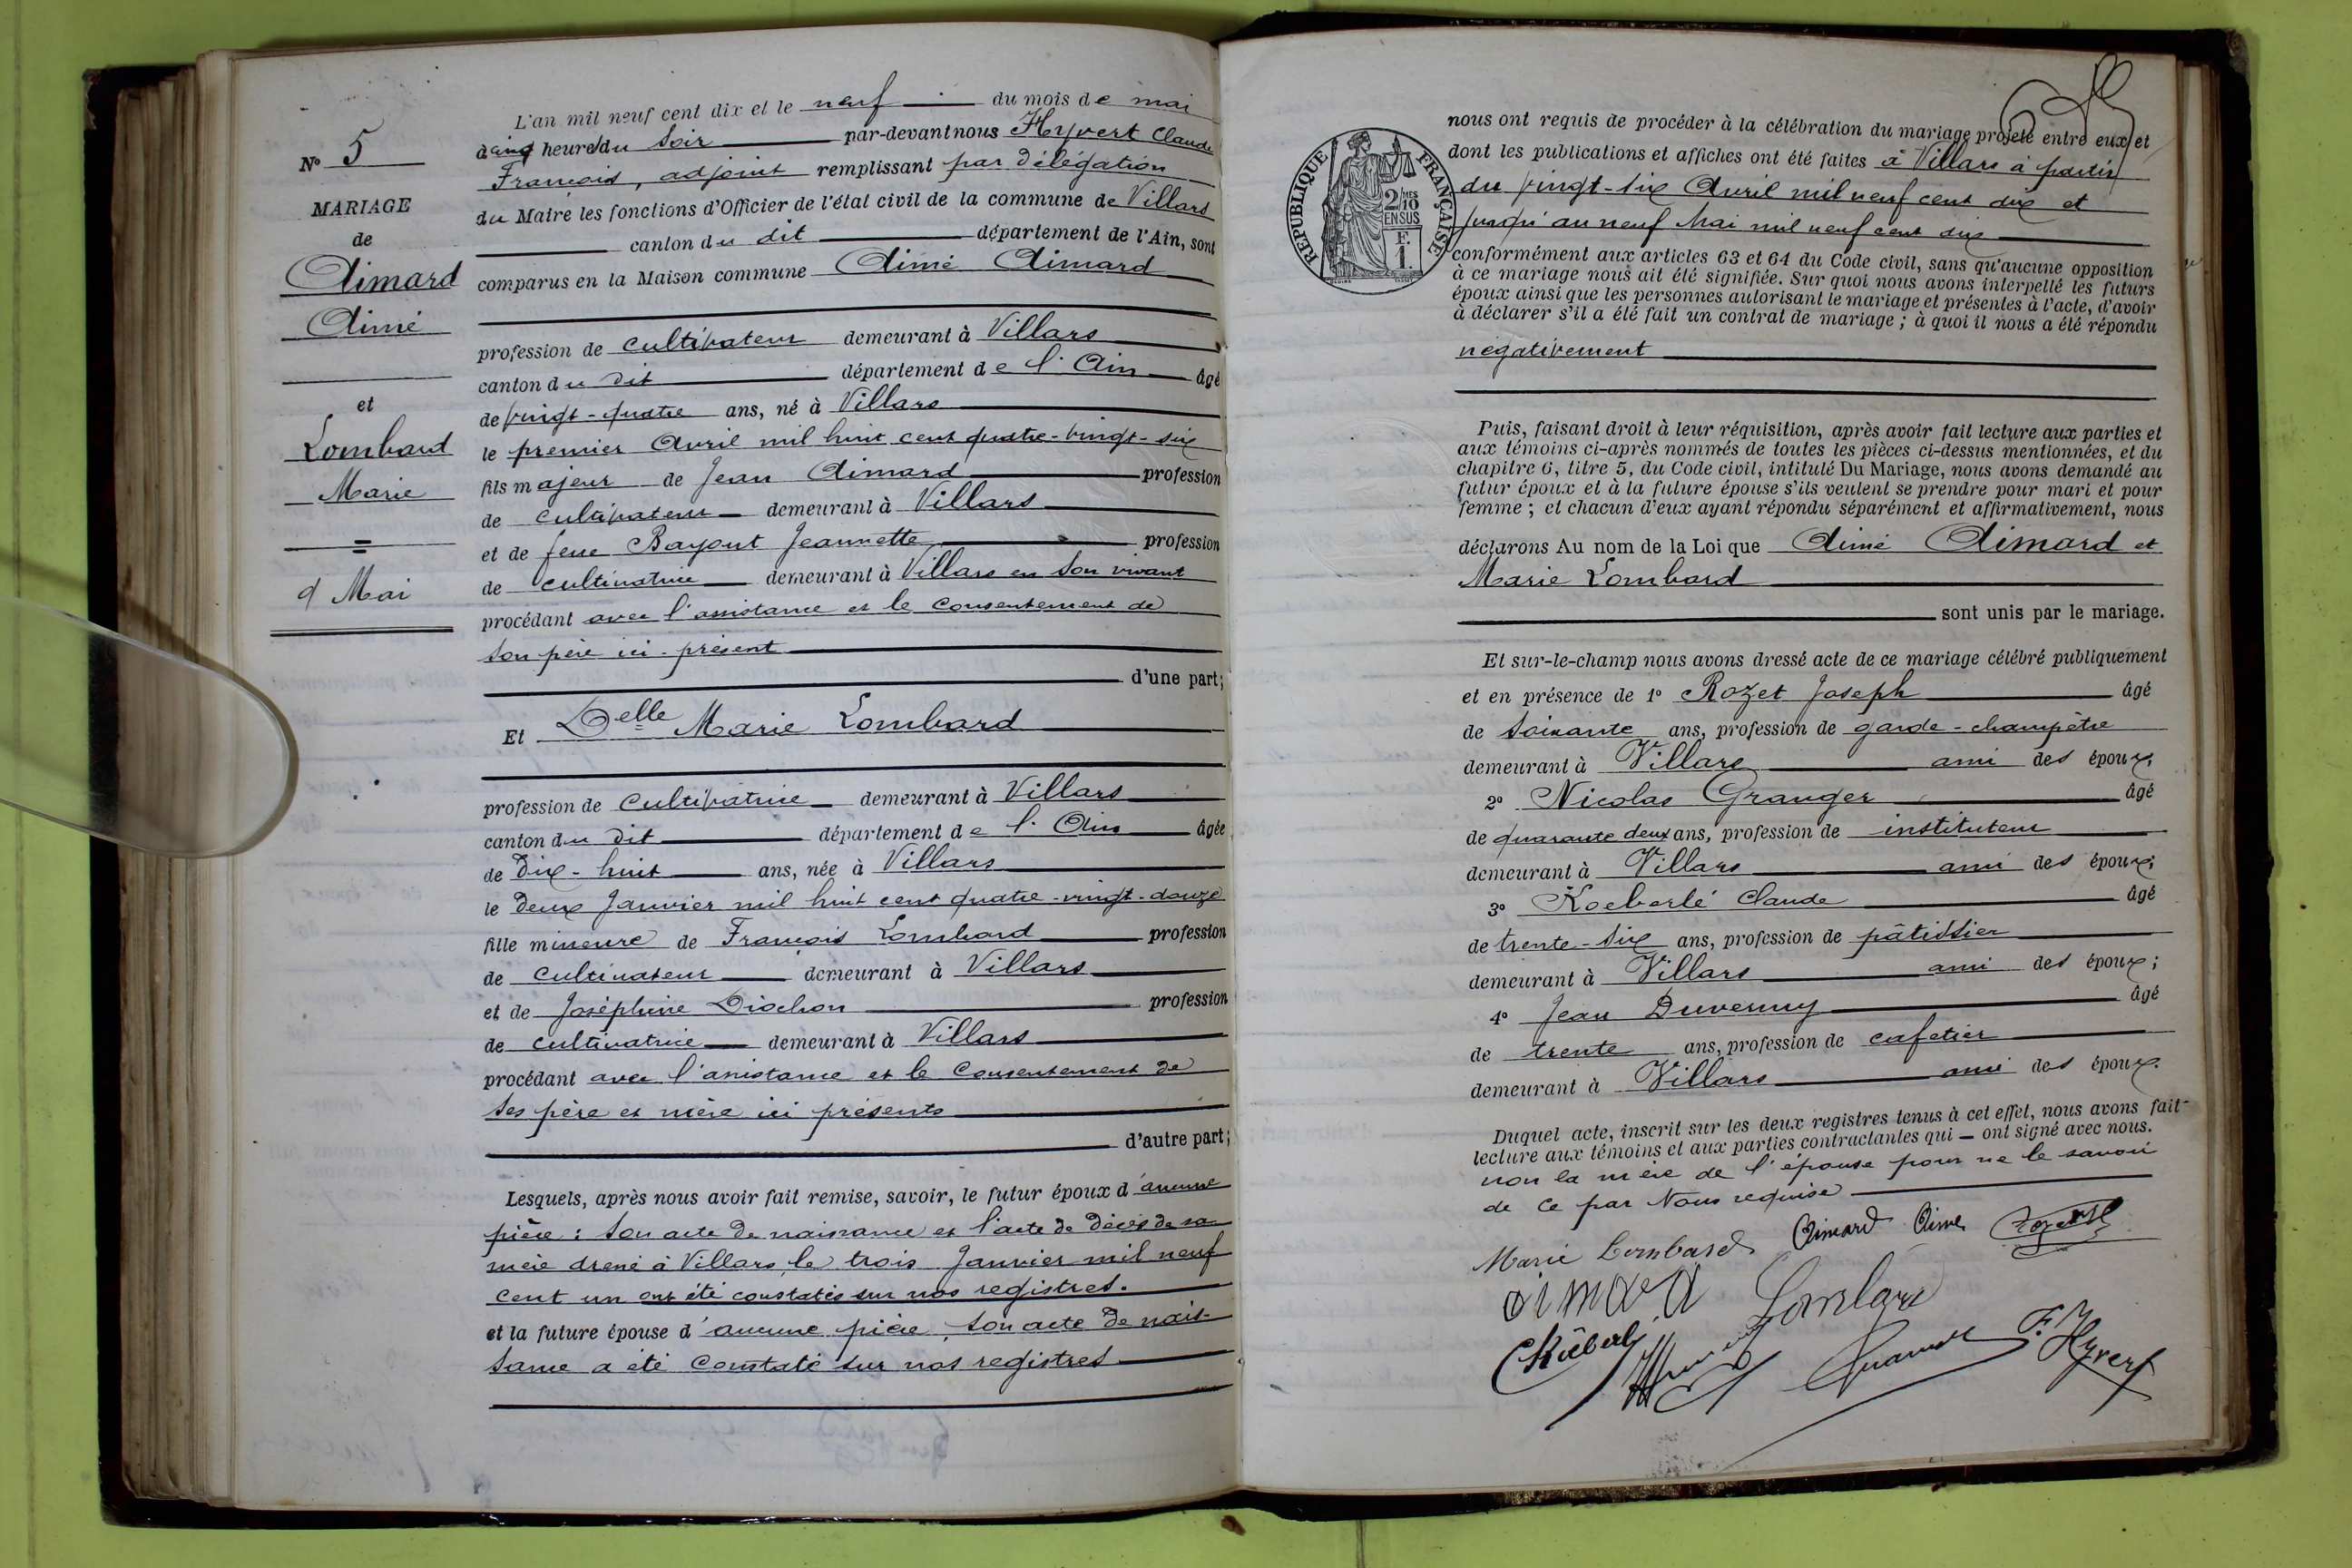 N° 5
MARIAGE
de
Aimard
Aimé
et
Lombard
Marie
9 Mai
L'an mil neuf cent dix et le neuf du mois de mai
à cinq heures du soir par-devant nous Hyvert Claude
François, adjoint remplissant par délégation
du Maire les fonctions d'Officier de l'état civil de la commune de Villars
canton du dit département de l'Ain, sont
comparus en la Maison commune Aimé Aimard
profession de cultivateur demeurant à Villars
canton du dit département de l'Ain âgé
de vingt-quatre ans, né à Villars
le premier Avril mil huit cent quatre-vingt-six
fils majeur de Jean Aimard profession
de cultivateur demeurant à Villars
et de feue Bayout Jeannette profession
de cultivatrice demeurant à Villars en son vivant
procédant avec l'assistance et le consentement de
son père ici-présent
d'une part;
Et Delle Marie Lombard
profession de cultivatrice demeurant à Villars
canton du dit département de l'Ain âgée
de dix-huit ans, née à Villars
le deux Janvier mil huit cent quatre-vingt-douze
fille mineure de François Lombard profession
de cultivateur demeurant à Villars
et de Joséphine Diochon profession
de cultivatrice demeurant à Villars
procédant avec l'assistance et le consentement de
ses père et mère ici présents
d'autre part;
Lesquels, après nous avoir fait remise, savoir, le futur époux d'aucune
pièce : son acte de naissance et l'acte de décès de sa
mère dressé à Villars le trois Janvier mil neuf
cent un ont été constatés sur nos registres.
et la future épouse d'aucune pièce, son acte de nais-
sance a été constaté sur nos registres
RÉPUBLIQUE FRANÇAISE
2/10MES
EN SUS
F.
1.
nous ont requis de procéder à la célébration du mariage projeté entre eux et
dont les publications et affiches ont été faites à Villars à partir
du vingt-six Avril mil neuf cent dix et
jusqu'au neuf Mai mil neuf cent dix
conformément aux articles 63 et 64 du Code civil, sans qu'aucune opposition
à ce mariage nous ait été signifiée. Sur quoi nous avons interpellé les futurs
époux ainsi que les personnes autorisant le mariage et présentes à l'acte, d'avoir
à déclarer s'il a été fait un contrat de mariage ; à quoi il nous a été répondu
négativement
Puis, faisant droit à leur réquisition, après avoir fait lecture aux parties et
aux témoins ci-après nommés de toutes les pièces ci-dessus mentionnées, et du
chapitre 6, titre 5, du Code civil, intitulé Du Mariage, nous avons demandé au
futur époux et à la future épouse s'ils veulent se prendre pour mari et pour
femme ; et chacun d'eux ayant répondu séparément et affirmativement, nous
déclarons Au nom de la Loi que Aimé Aimard et
Marie Lombard
sont unis par le mariage.
Et sur-le-champ nous avons dressé acte de ce mariage célébré publiquement
et en présence de 1° Rozet Joseph âgé
de soixante ans, profession de garde-champêtre
demeurant à Villars ami des époux;
2° Nicolas Granger âgé
de quarante deux ans, profession de instituteur
demeurant à Villars ami des époux;
3° Koeberlé Claude âgé
de trente-six ans, profession de pâtissier
demeurant à Villars ami des époux;
4° Jean Duverny âgé
de trente ans, profession de cafetier
demeurant à Villars ami des époux.
Duquel acte, inscrit sur les deux registres tenus à cet effet, nous avons fait
lecture aux témoins et aux parties contractantes qui — ont signé avec nous.
non la mère de l'épouse pour ne le savoir
de ce par Nous requise
Marie Lombard Aimard Aimé Rozet
aimard Lombard
F. Hyvert